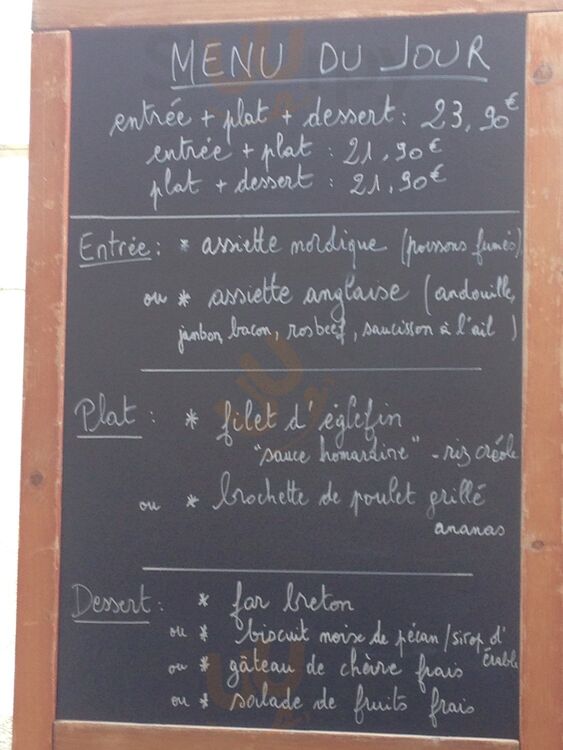 MENU DU JOUR
entrée + plat + dessert : 23,90€
entrée + plat : 21,90€
plat + dessert : 21,90€
Entrée : * assiette nordique (poissons fumés)
ou * assiette anglaise (andouille,
jambon, bacon, rosbeef, saucisson à l'ail)
Plat : * filet d'églefin
"sauce homardine" - riz créole
ou * brochette de poulet grillé
ananas
Dessert : * far breton
ou * biscuit noix de pécan / sirop d'
érable
ou * gâteau de chèvre frais
ou * salade de fruits frais